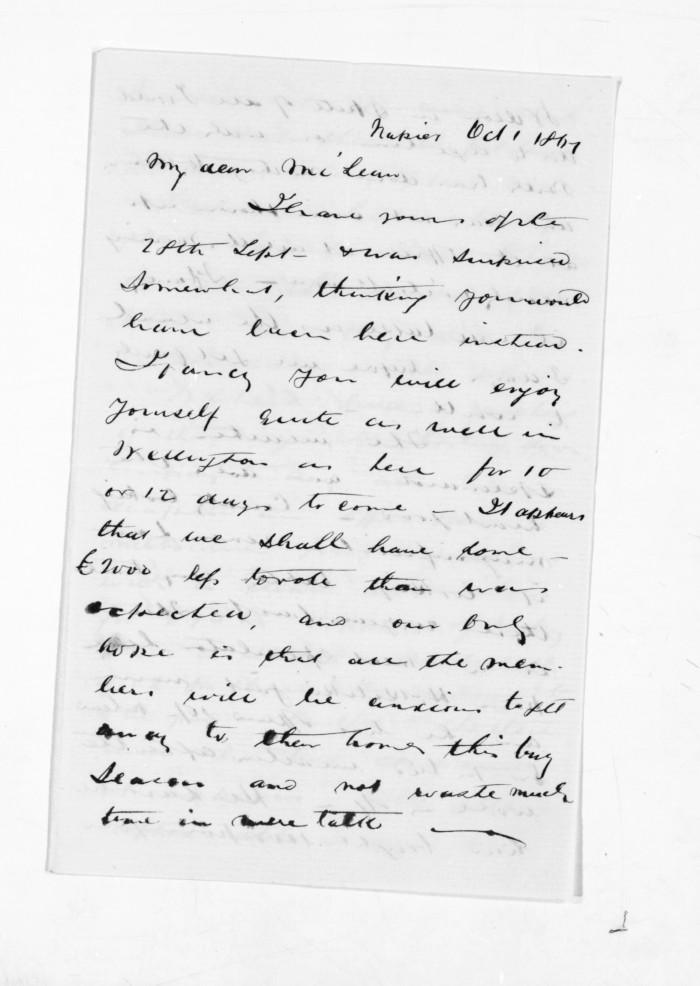 Napier Oct 1 1867
My dear McLean
I have yours of the
28th Sept - & was surprised
somewhat, thinking you would
have been here instead.
I fancy you will enjoy
yourself quite as well in
Wellington as here for 10
or 12 days to come - It appears
that we shall have some
£2000 less to vote than was
expected, and our only
hope is that all the mem-
bers will be anxious to get
away to their homes this busy
season and not waste much
time in mere talk
1